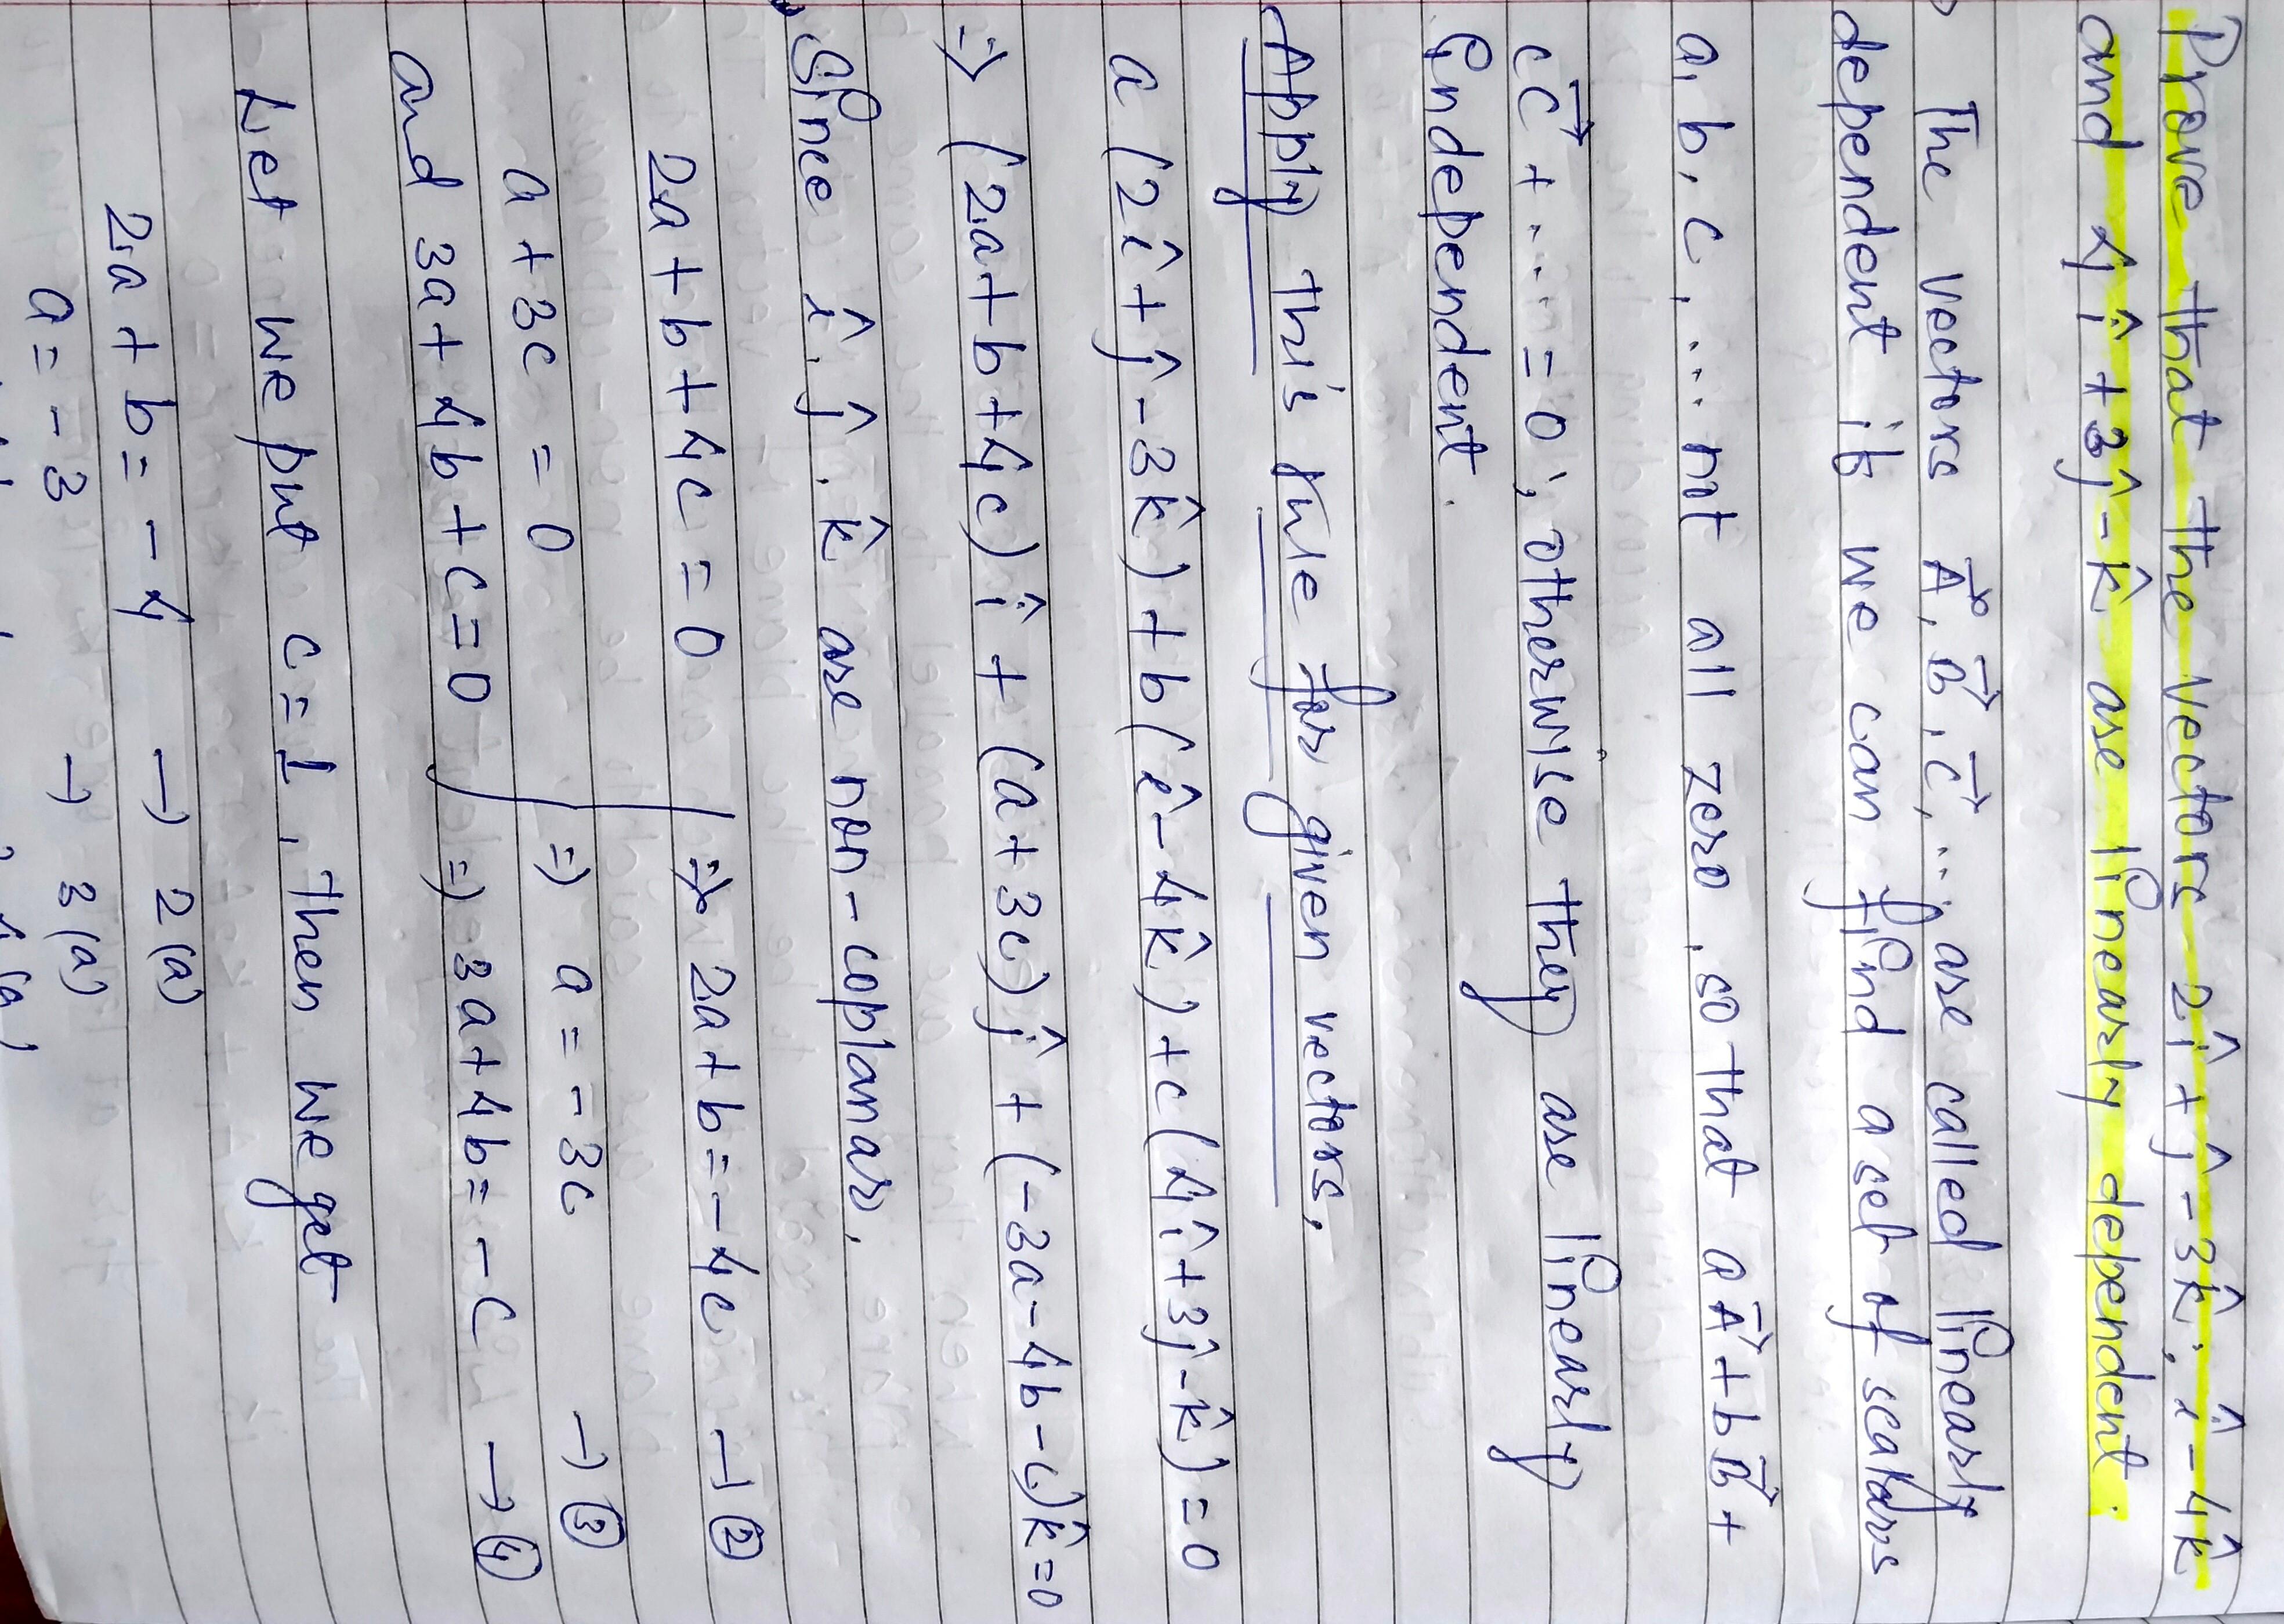 Prove that the vectors 2î + ĵ - 3k̂, î - 4k̂
and 4î + 3ĵ - k̂ are linearly dependent.
The vectors A⃗, B⃗, C⃗, ... are called linearly
dependent if we can find a set of scalars
a, b, c, ... not all zero, so that aA⃗ + bB⃗ +
cC⃗ + ... = 0; otherwise they are linearly
independent.
Apply this rule for given vectors,
a (2î + ĵ - 3k̂) + b (î - 4k̂) + c (4î + 3ĵ - k̂) = 0
=> (2a + b + 4c) î + (a + 3c) ĵ + (-3a - 4b - c) k̂ = 0
Since î, ĵ, k̂ are non-coplanar,
2a + b + 4c = 0 => 2a + b = -4c → ②
a + 3c = 0 => a = -3c → ③
and 3a + 4b + c = 0 => 3a + 4b = -c → ④
Let we put c = 1, then we get
2a + b = -4 → 2(a)
a = -3 → 3(a)